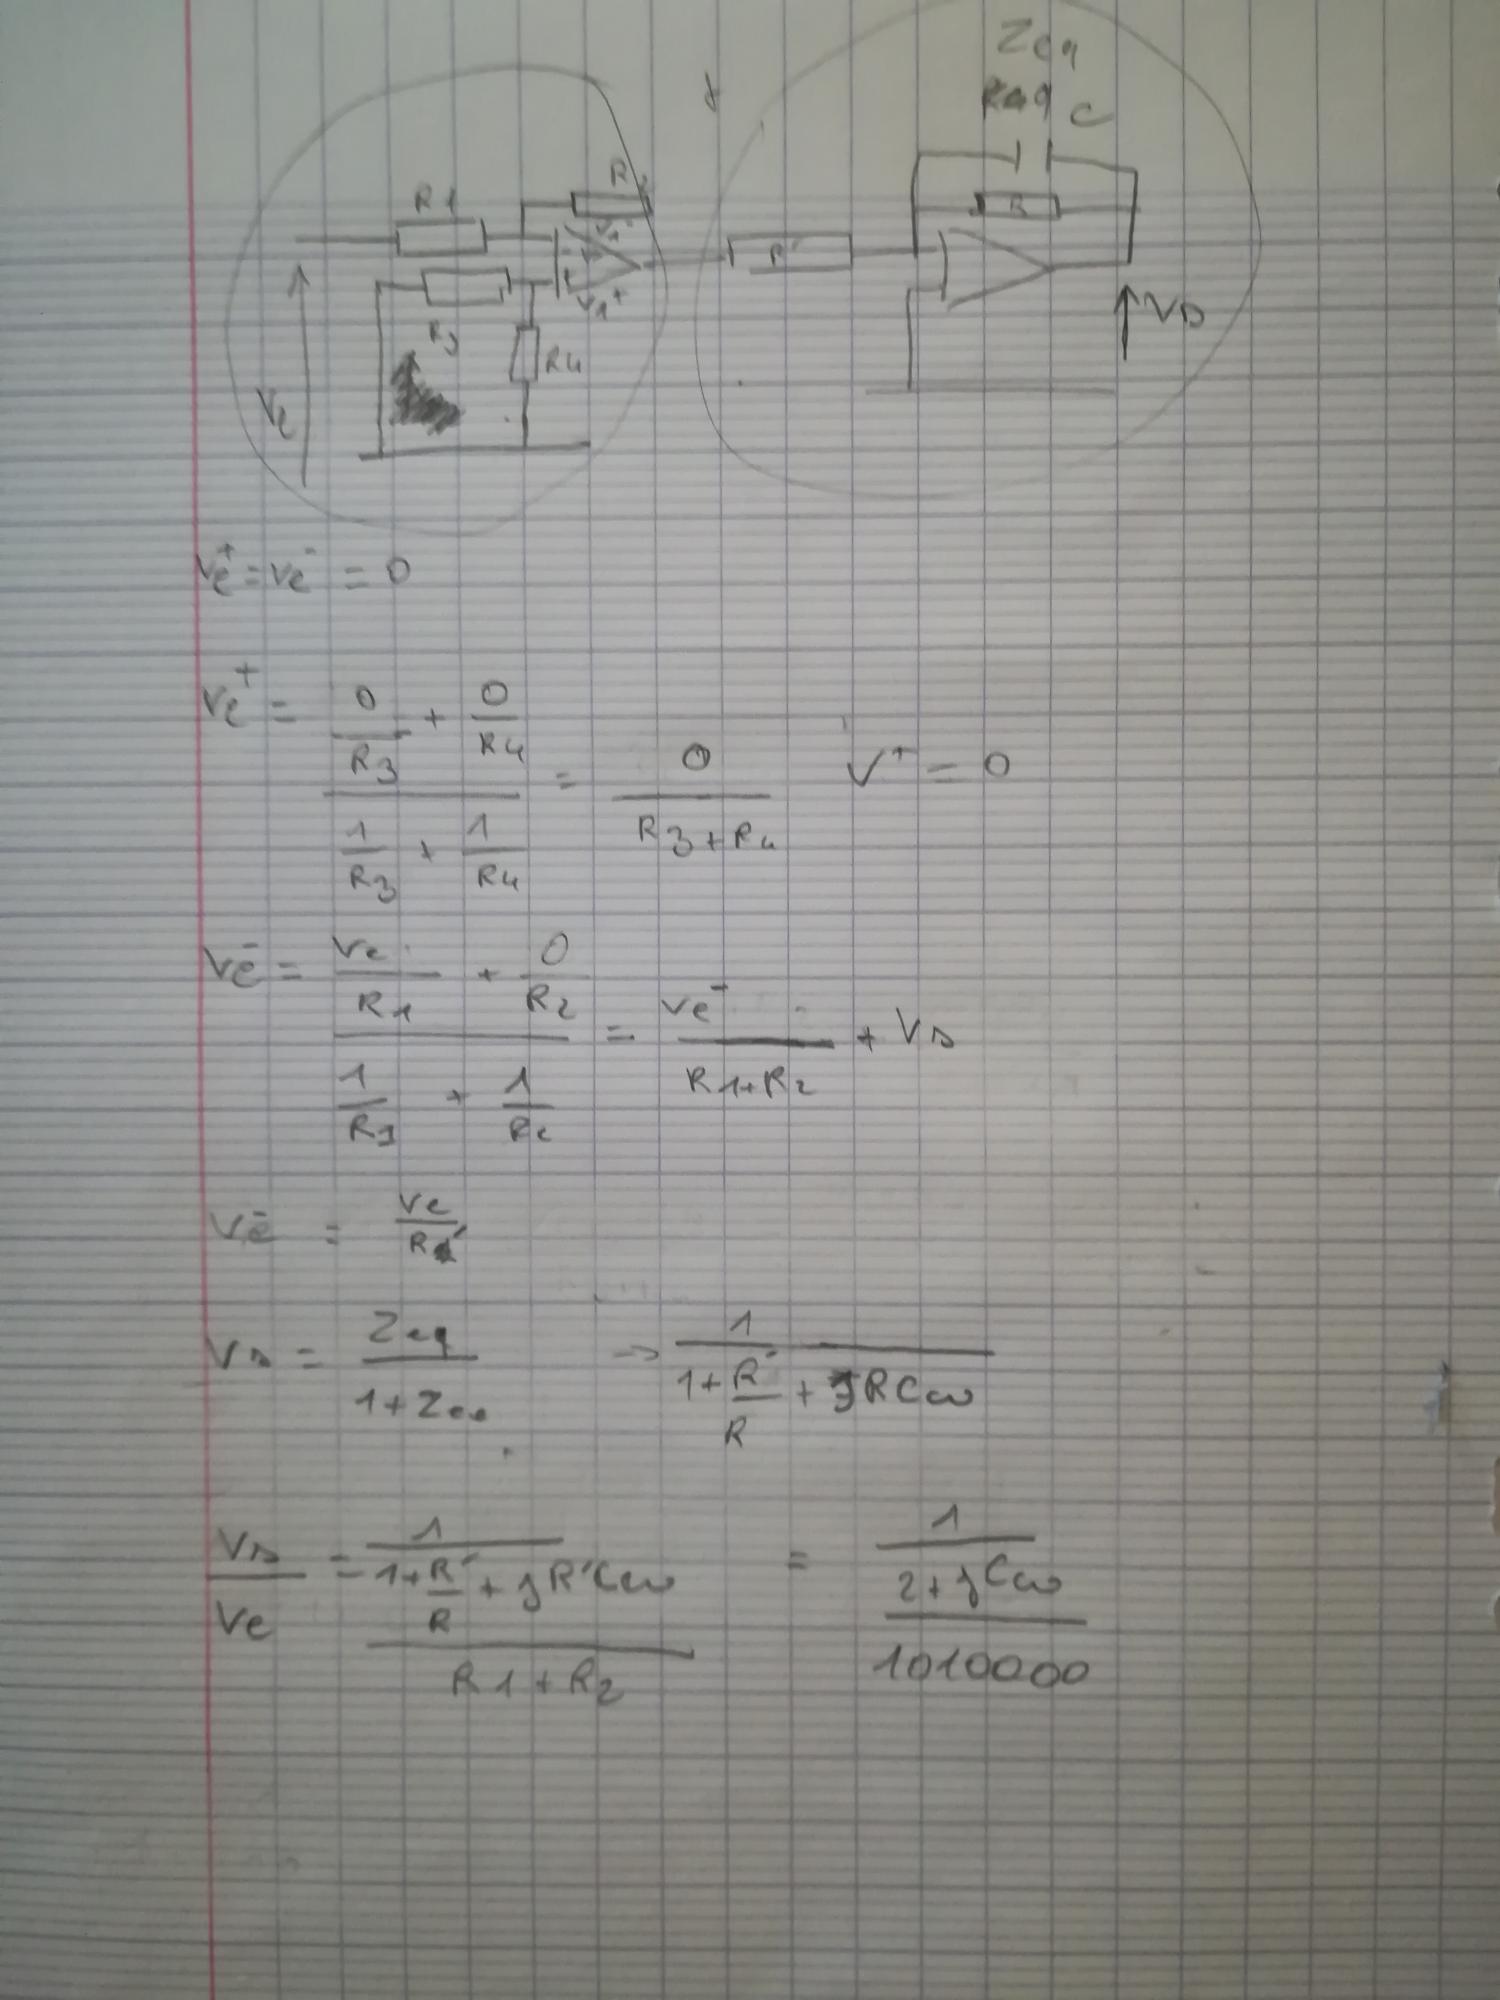 Zeq
C
R1
R
R'
R
V1-
V1+
R3
R4
Ve
Vs
Ve+ = Ve- = 0
Ve+ = (0/R3 + 0/R4) / (1/R3 + 1/R4) = 0 / (R3 + R4) V+ = 0
Ve- = (Ve/R1 + 0/R2) / (1/R1 + 1/R2) = Ve- / (R1+R2) + Vs
Ve- = Ve / R1'
Vs = Zeq / (1 + Zeq) -> 1 / (1 + R'/R + jRCω)
Vs / Ve = (1 / (1 + R'/R + jR'Cω)) / (R1 + R2) = (1 / (2 + jCω)) / 1010000